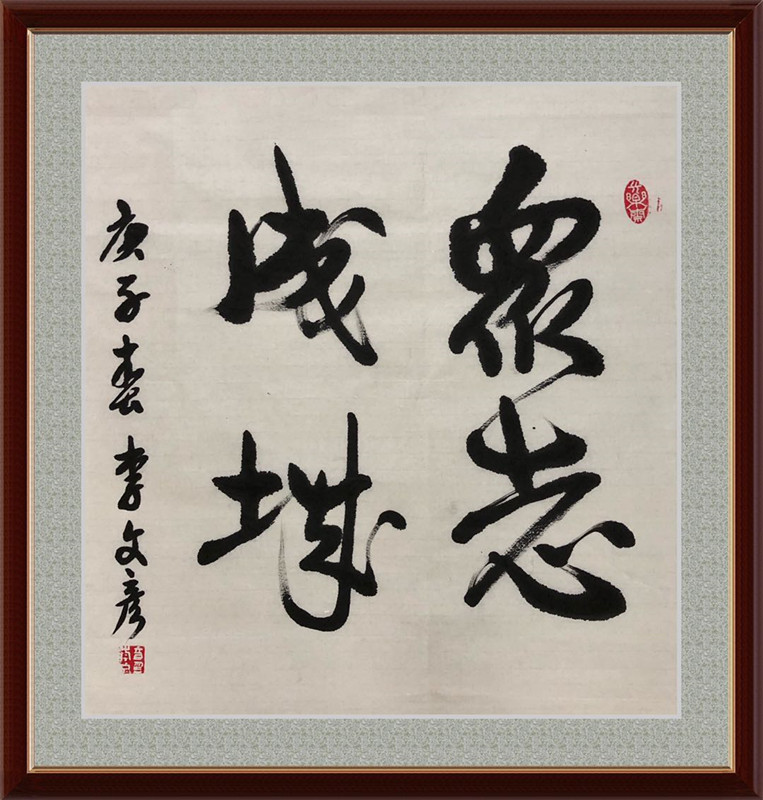 眾志
成城
庚子春李文彦